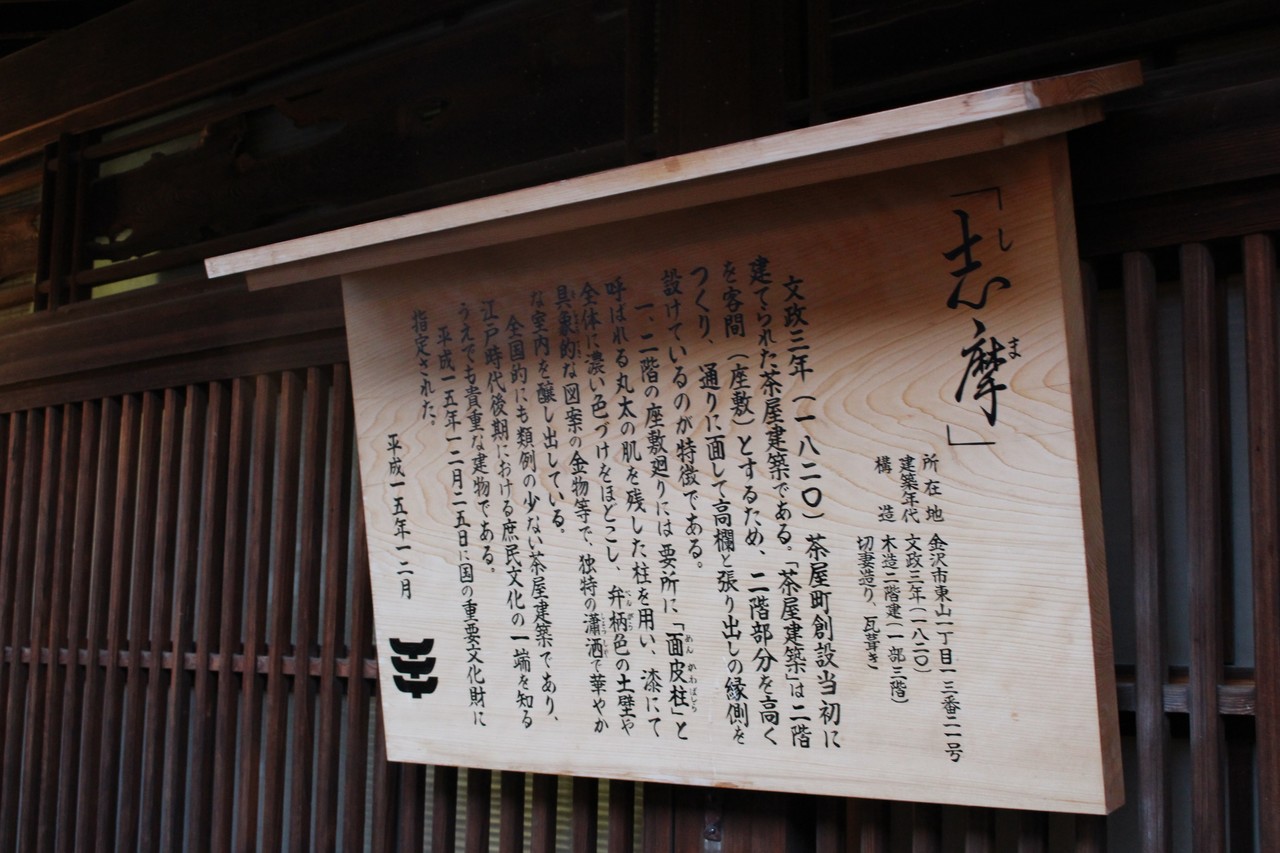 「志摩」
しま
所在地 金沢市東山一丁目一三番二一号
建築年代 文政三年(一八二〇)
構造 木造二階建(一部三階)
切妻造り、瓦葺き
文政三年(一八二〇)茶屋町創設当初に
建てられた茶屋建築である。「茶屋建築」は二階
を客間(座敷)とするため、二階部分を高く
つくり、通りに面して高欄と張り出しの縁側を
設けているのが特徴である。
一、二階の座敷廻りには要所に「面皮柱」と
めんかわばしら
呼ばれる丸太の肌を残した柱を用い、漆にて
全体に濃い色づけをほどこし、弁柄色の土壁や
べんがら
具象的な図案の金物等で、独特の瀟洒で華やか
しょうしゃ
な室内を醸し出している。
全国的にも類例の少ない茶屋建築であり、
江戸時代後期における庶民文化の一端を知る
うえでも貴重な建物である。
平成一五年一二月二五日に国の重要文化財に
指定された。
平成一五年一二月